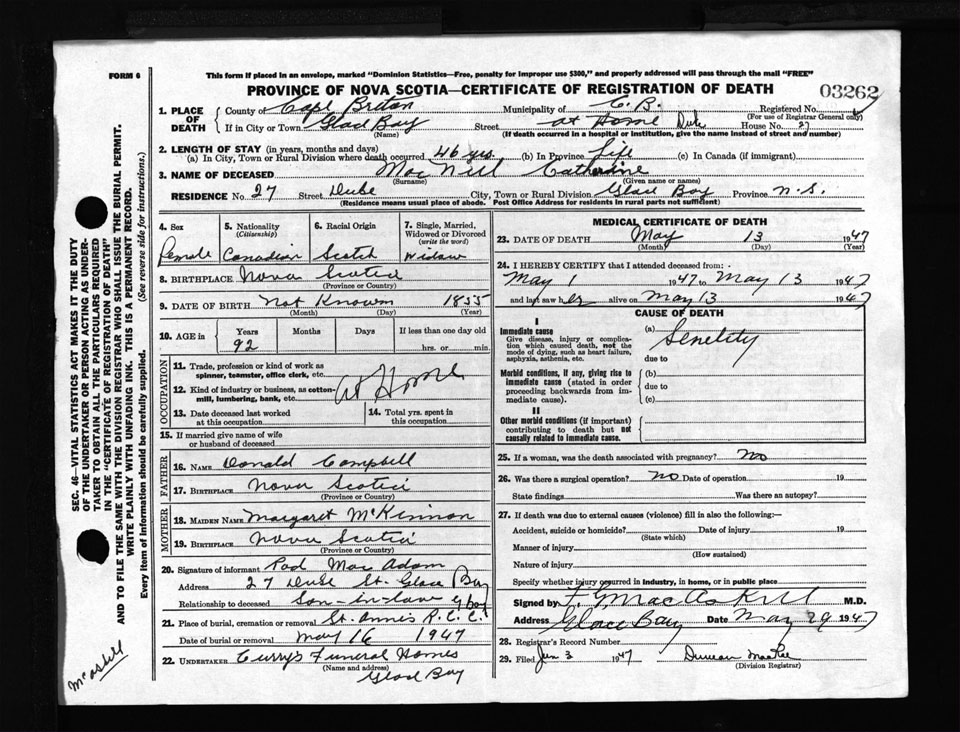 FORM 6
This form if placed in an envelope, marked "Dominion Statistics—Free, penalty for improper use $300," and properly addressed will pass through the mail "FREE"
PROVINCE OF NOVA SCOTIA—CERTIFICATE OF REGISTRATION OF DEATH
03262
1. PLACE OF DEATH
County of Cape Breton Municipality of C. B. Registered No.
(For use of Registrar General only)
If in City or Town Glace Bay Street at Home House No. 27
(Name) (If death occurred in a hospital or institution, give the name instead of street and number)
2. LENGTH OF STAY (in years, months and days)
(a) In City, Town or Rural Division where death occurred 46 yrs (b) In Province Life (c) In Canada (if immigrant)
3. NAME OF DECEASED Mac Neil Catherine
(Surname) (Given name or names)
RESIDENCE No. 27 Street City, Town or Rural Division Glace Bay Province N.S.
(Residence means usual place of abode. Post Office Address for residents in rural parts not sufficient)
4. Sex
Female
5. Nationality
(Citizenship)
Canadian
6. Racial Origin
Scotch
7. Single, Married, Widowed or Divorced
(write the word)
Widow
8. BIRTHPLACE Nova Scotia
(Province or Country)
9. DATE OF BIRTH Not Known 1855
(Month) (Day) (Year)
10. AGE in
Years Months Days If less than one day old
92 hrs. or min.
OCCUPATION
11. Trade, profession or kind of work as spinner, teamster, office clerk, etc.
12. Kind of industry or business, as cotton-mill, lumbering, bank, etc.
At Home
13. Date deceased last worked at this occupation
14. Total yrs. spent in this occupation
15. If married give name of wife or husband of deceased
FATHER
16. NAME Donald Campbell
17. BIRTHPLACE Nova Scotia
(Province or Country)
MOTHER
18. MAIDEN NAME Margaret McKinnon
19. BIRTHPLACE Nova Scotia
(Province or Country)
20. Signature of informant Rod Mac Adam
Address 27 St. Glace Bay
Relationship to deceased Son-in-law
21. Place of burial, cremation or removal St. Annes R.C.C.
Date of burial or removal May 16 1947
22. UNDERTAKER Curry's Funeral Homes
(Name and address)
Glace Bay
MEDICAL CERTIFICATE OF DEATH
23. DATE OF DEATH May 13 1947
(Month) (Day) (Year)
24. I HEREBY CERTIFY that I attended deceased from:
May 1 1947 to May 13 1947
and last saw her alive on May 13 1947
CAUSE OF DEATH
I
Immediate cause
Give disease, injury or complication which caused death, not the mode of dying, such as heart failure, asphyxia, asthenia, etc.
(a) Senility
due to
Morbid conditions, if any, giving rise to immediate cause (stated in order proceeding backwards from immediate cause).
(b)
due to
(c)
II
Other morbid conditions (if important) contributing to death but not causally related to immediate cause.
25. If a woman, was the death associated with pregnancy? No
26. Was there a surgical operation? No Date of operation 19
State findings Was there an autopsy?
27. If death was due to external causes (violence) fill in also the following:—
Accident, suicide or homicide? Date of injury 19
(State which)
Manner of injury
(How sustained)
Nature of injury
Specify whether injury occurred in industry, in home, or in public place
Signed by F. G. MacAskill M.D.
Address Glace Bay Date May 29 1947
28. Registrar's Record Number
29. Filed Jun 3 1947 Duncan MacRae
(Division Registrar)
SEC. 46—VITAL STATISTICS ACT MAKES IT THE DUTY
OF THE UNDERTAKER OR PERSON ACTING AS UNDER-
TAKER TO OBTAIN ALL THE PARTICULARS REQUIRED
IN THE "CERTIFICATE OF REGISTRATION OF DEATH"
AND TO FILE THE SAME WITH THE DIVISION REGISTRAR WHO SHALL ISSUE THE BURIAL PERMIT.
WRITE PLAINLY WITH UNFADING INK. THIS IS A PERMANENT RECORD.
Every item of information should be carefully supplied. (See reverse side for instructions.)
McAskill